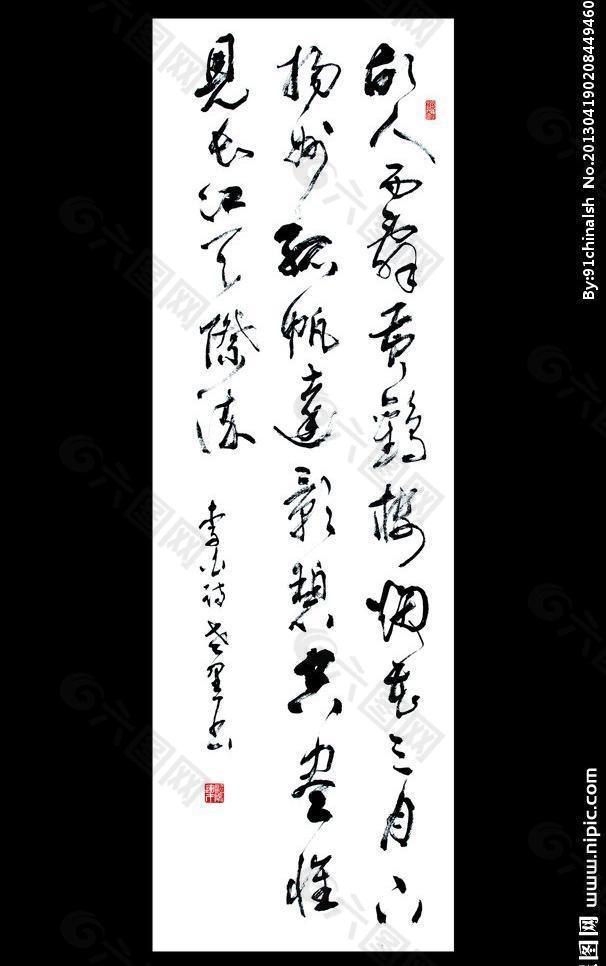 故人西辭黄鶴樓烟花三月下
揚州孤帆遠影碧空盡惟
見長江天際流
李白詩
By:91chinalsh No.201304190208449460
昵图网 www.nipic.com
六图网